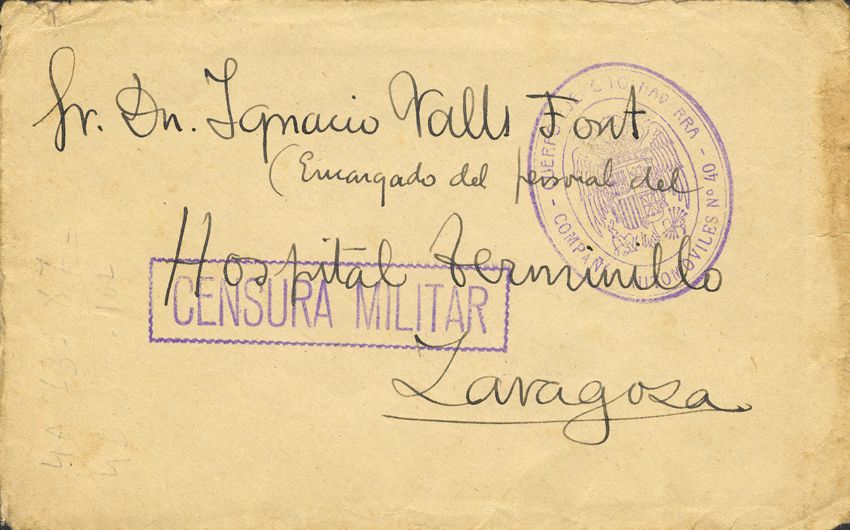 Sr. Dn. Ignacio Valls Font
(Encargado del personal del
Hospital Terminillo
Zaragoza
CENSURA MILITAR
COMPAÑ OMOVILES Nº 40